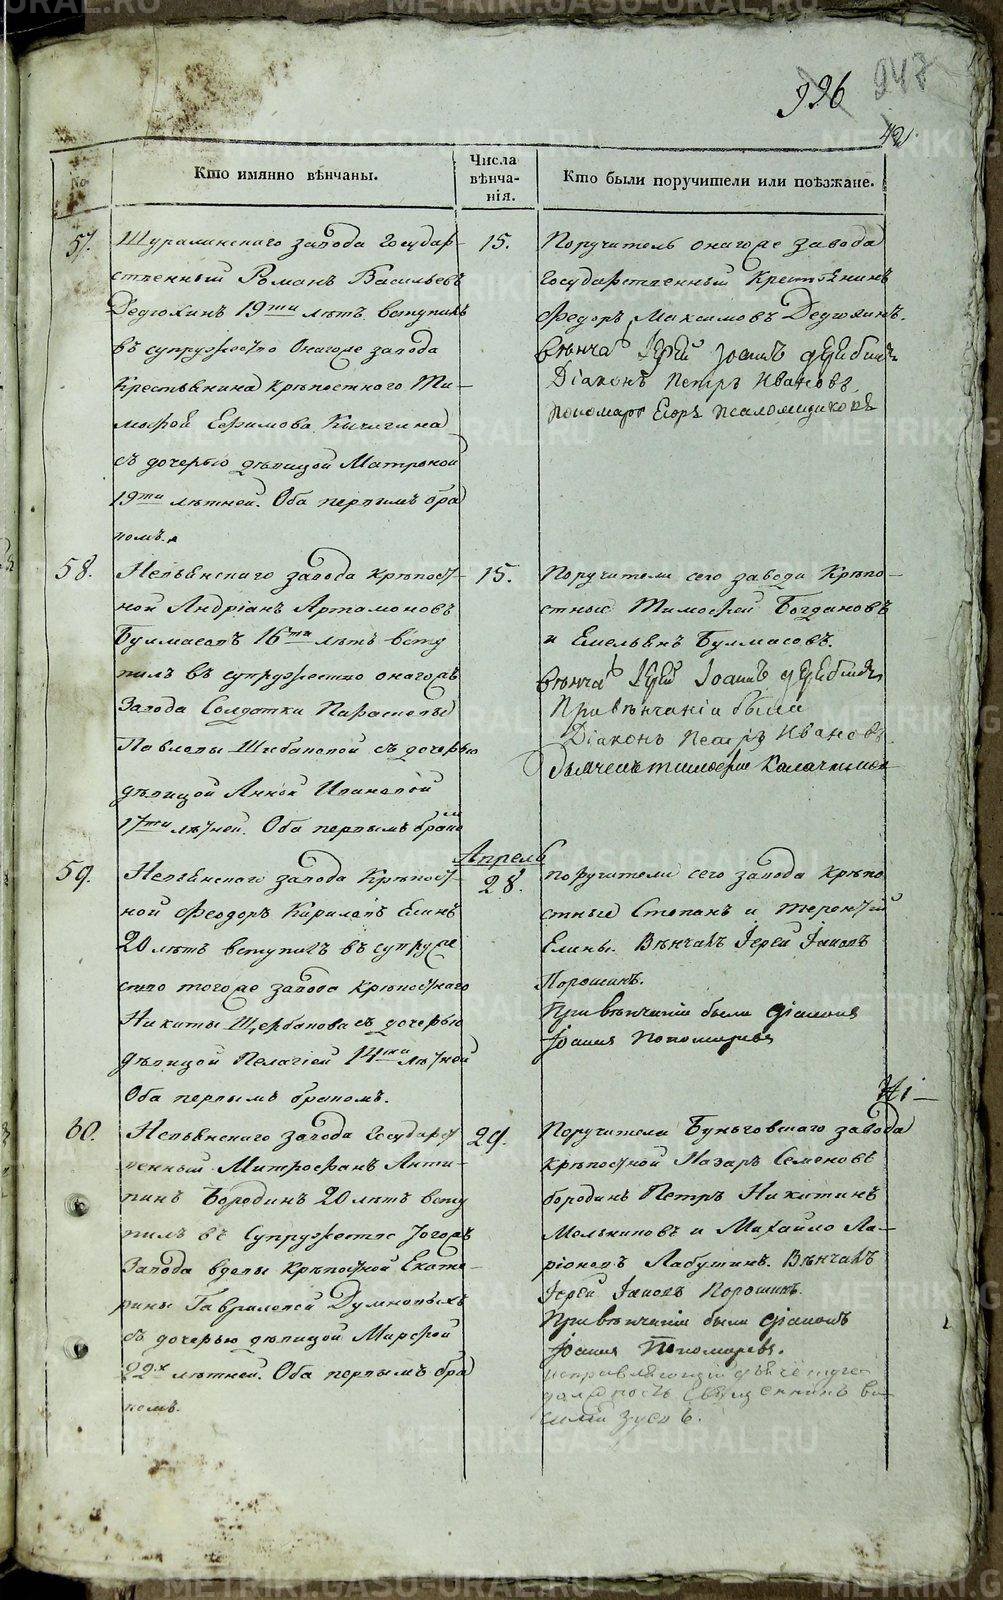 996
247
421
№
Кто имянно вѣнчаны.
Числа вѣнча-нія.
Кто были поручители или поѣзжане.
57.
Шуралинскаго завода Государ-
ственный Романъ Васильевъ
Дедюхинъ 19ти лѣтъ вступилъ
въ супружество онагоже завода
Крестьянина крѣпостного Ти-
мофей Ефимова Кичигина
съ дочерью дѣвицой Матроной
19ти лѣтней. Оба первымъ бра
комъ.
15.
Поручитель онагоже завода
Государственный Крестьянинъ
Федоръ Максимовъ Дедюхинъ.
Вѣнча Іерей Іоаннъ
Діаконъ Петръ Ивановъ
пономарь Егоръ Псаломщиковъ
58.
Невьянскаго завода крѣпост-
ной Андріанъ Артамоновъ
Булмасовъ 16ти лѣтъ всту
пилъ въ супружество онагожъ
Завода Солдатки Параскевы
Павловы Шибановой съ дочерью
дѣвицой Анной Ивановой
17ти лѣтней. Оба первымъ брако
15.
Поручители сего завода Крѣпо-
стные Тимофей Богдановъ
и Емельянъ Булмасовъ.
Вѣнча Іерей Іоаннъ
При вѣнчаніи были
Діаконъ Петръ Ивановъ
Дьячекъ тимофеи
59.
Невьянскаго завода Крѣпост-
ной Феодоръ Кириловъ Елинъ
20 лѣтъ вступилъ въ супруже
ство тогоже завода крѣпостнаго
Никиты Щербакова съ дочерью
дѣвицой Пелагіей 14ти лѣтной
Оба первымъ бракомъ.
Апрель
28.
поручители сего завода крѣпо
стные Степанъ и терентій
Елины. Вѣнчалъ Іерей Іаковъ
Порошинъ.
При вѣнчаніи были діаконъ
Іоаннъ Пономаревъ
60.
Невьянскаго завода Государст
венный Митрофанъ Анти-
пинъ Бородинъ 20 лѣтъ всту
пилъ въ Супружество тогожъ
Завода вдовы Крѣпостной Екате-
рины Гавриловой Думновыхъ
съ дочерью дѣвицой Марфой
22х лѣтней. Оба первымъ бра
комъ.
29.
Поручители Быньговскаго завода
крѣпостной Назаръ Семеновъ
бородинъ Петръ Никитинъ
Мельниковъ и Михайло Ла-
ріоновъ Лабутинъ. Вѣнчалъ
Іерей Іаковъ Порошинъ.
При вѣнчаніи были діаконъ
Іоаннъ Пономаревъ.
исправляющій дьяческую
должность Священникъ Ва-
силій